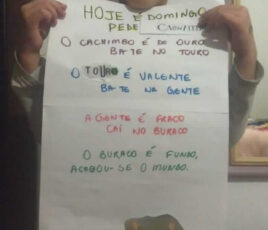 HOJE É DOMINGO
PEDE CACHIMBO
O CACHIMBO É DE OURO
BATE NO TOURO
O TOURO É VALENTE
BATE NA GENTE
A GENTE É FRACO
CAÍ NO BURACO
O BURACO É FUNDO,
ACABOU-SE O MUNDO.